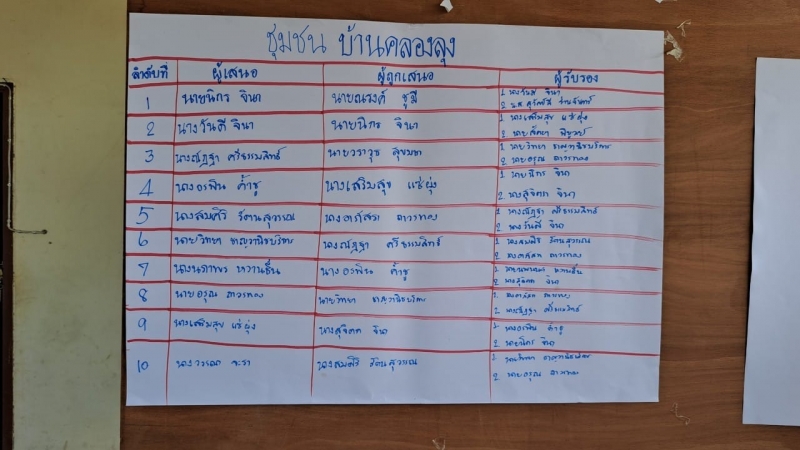 ชุมชน บ้านคลองลุง
ลำดับที่ ผู้เสนอ ผู้ถูกเสนอ ผู้รับรอง
1 นายนิกร จินา นายณรงค์ ชูมี 1 นางวันดี จินา
2 น.ส.
2 นางวันดี จินา นายนิกร จินา 1 นางเสริมสุข แซ่ยุ่ง
2 นาย
3 นางณัฏฐา ศรีธรรมสิทธิ์ นายวราวุธ 1 นายวิทยา ชาญวานิชบริการ
2 นายอรุณ ถาวรทอง
4 นางอรพิน ค้ำชู นางเสริมสุข แซ่ยุ่ง 1 นายนิกร จินา
2 นางสุจิตต จินา
5 นางสมศิริ รัตนสุวรรณ ถาวรทอง 1 นางณัฏฐา ศรีธรรมสิทธิ์
2 นางวันดี จินา
6 นายวิทยา ชาญวานิชบริการ นางณัฏฐา ศรีธรรมสิทธิ์ 1 นางสมศิริ รัตนสุวรรณ
2 ถาวรทอง
7 หวานชื่น นางอรพิน ค้ำชู 1 หวานชื่น
2 นางสุจิตต จินา
8 นายอรุณ ถาวรทอง นายวิทยา ชาญวานิชบริการ 1 ถาวรทอง
2 นางณัฏฐา ศรีธรรมสิทธิ์
9 นางเสริมสุข แซ่ยุ่ง นางสุจิตต จินา 1 นางอรพิน ค้ำชู
2 นายนิกร จินา
10 นางสมศิริ รัตนสุวรรณ 1 นายวิทยา ชาญวานิชบริการ
2 นายอรุณ ถาวรทอง